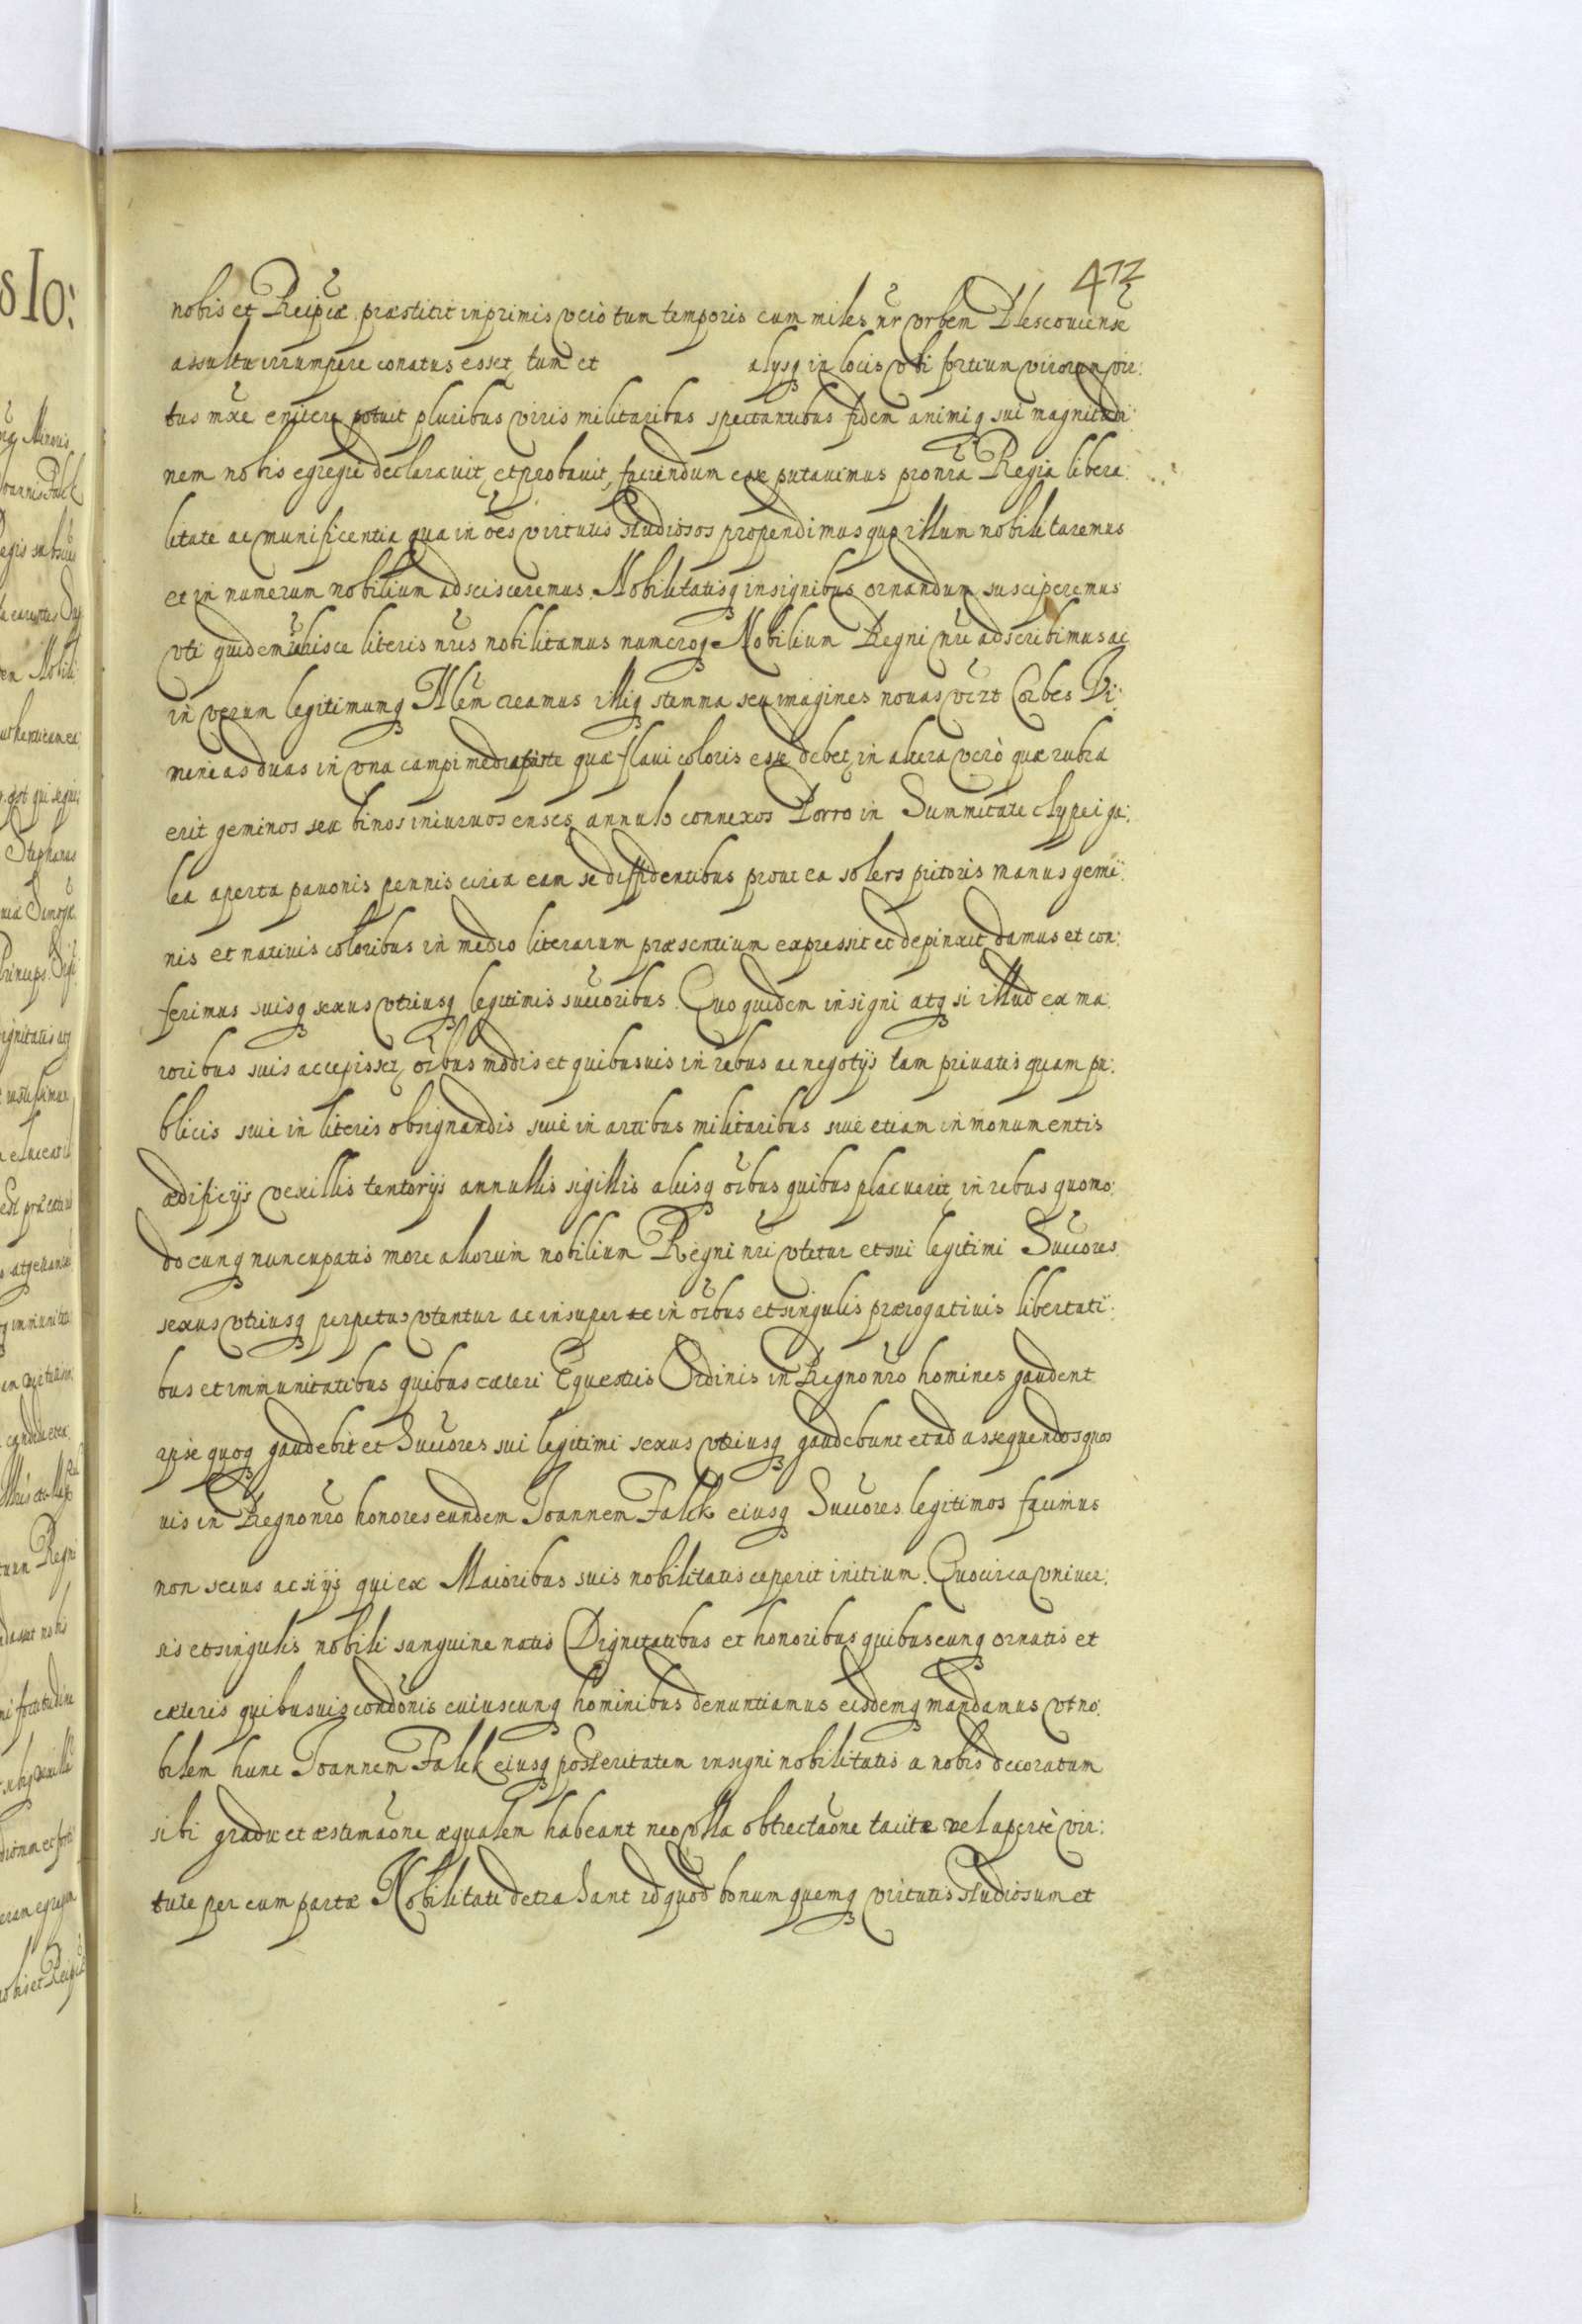 472
nobis et Reipcæ præstitit inprimis verò tum temporis cum miles nr vrbem Plescouiense
assultu irrumpere conatus esset, tum et alysq in locis vbi fortium virorum vir:
tus mxe enitere potuit pluribus viris militaribus spectantibus fidem animiq sui magnitudi:
nem nobis egregie declarauit, et probauit, faciendum esse putauimus pro nra Regia libera:
litate ac munificentia qua in oes virtutis studiosos propendimus quo illum nobilitaremus
et in numerum nobilium adscisceremus. Nobilitatisq insignibus ornandum susciperemus
vti quidem hisce literis nris nobilitamus numeroq Nobilium Regni nri adscribimus ac
in verum legitimumq Nlem creamus illiq stemma seu imagines nouas vizt Orbes Vi:
neneas duas in vna campi media parte quæ flaui coloris esse debet, in altera verò quæ rubra
erit geminos seu binos incuruos enses annulo connexos Porro in Summitate clypei ga:
lea aperta pauonis pennis circa eam se diffidentibus prout ea solers pictoris manus gemi:
nis et natiuis coloribus in medio literarum præsentium expressit et depinxit damus et con:
ferimus suisq sexus vtriusq legitimis succoribus. Quo quidem insigni atq si illud ex ma:
ioribus suis accepisset, oibus modis et quibusuis in rebus ac negotijs tam priuatis quam pu:
blicis siue in literis obsignandis siue in artibus militaribus siue etiam in monumentis
ædificijs vexillis tentorijs annullis sigillis aliisq oibus quibus placuerit, in rebus quomo:
documq nuncupatis more aliorum nobilium Regni nri vtetur et sui legitimi Succores
sexus vtriusq perpetuo vtentur ac insuper in oibus et singulis prærogatiuis libertati:
bus et immunitatibus quibus cæteri Equestris Ordinis in Regno nro homines gaudent
ipse quoq gaudebit et Succores sui legitimi sexus vtriusq gaudebunt et ad assequendos quos
uis in Regno nro honores eundem Joannem Falck eiusq Succores legitimos facimus
non secus ac si ijs qui ex Maioribus suis nobilitatis ceperit initium. Quocirca vniuer:
sis et singulis nobili sanguine natis Dignitatibus et honoribus quibuscunq ornatis et
cæteris quibusuis condonis cuiuscunq hominibus denuntiamus eisdemq mandamus vt no:
bilem hunc Joannem Falck eiusq posteritatem insigni nobilitatis a nobis decoratum
sibi gradu et æstimaone æqualem habeant neo vlla obtrectaone tacite vel apertè vir:
tute per eum partæ Nobilitati detrahant id quod bonum quemq virtutis studiosum et